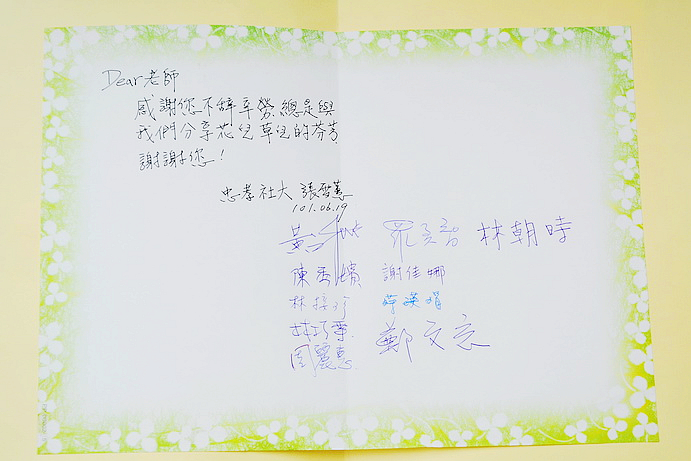 Dear 老師
感謝您不辞辛勞總是與
我們分享花兒草兒的芬芳
謝謝您！
忠孝社大 張智蕙
101.06.19
黃 羅 林朝時
陳香嬪 謝佳娜
林接
林巧
周麗惠 鄭文